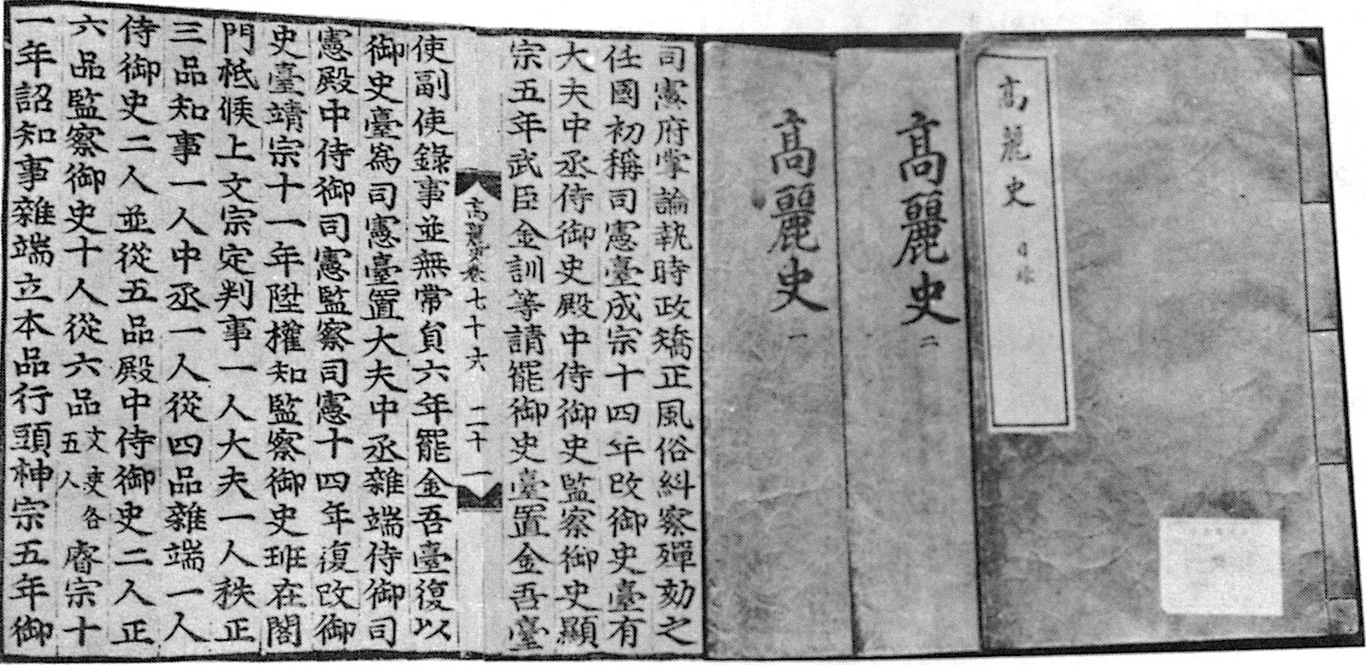 高麗史 目錄
高麗史 二
高麗史 一
司憲府掌論執時政矯正風俗糾察彈劾之
任國初稱司憲臺成宗十四年改御史臺有
大夫中丞侍御史殿中侍御史監察御史顯
宗五年武臣金訓等請罷御史臺置金吾臺
高麗史卷七十六 二十一
使副使錄事並無常員六年罷金吾臺復以
御史臺爲司憲臺置大夫中丞雜端侍御司
憲殿中侍御司憲監察司憲十四年復改御
史臺靖宗十一年陞權知監察御史班在閤
門祗候上文宗定判事一人大夫一人秩正
三品知事一人中丞一人從四品雜端一人
侍御史二人並從五品殿中侍御史二人正
六品監察御史十人從六品文吏各五人睿宗十
一年詔知事雜端立本品行頭神宗五年御